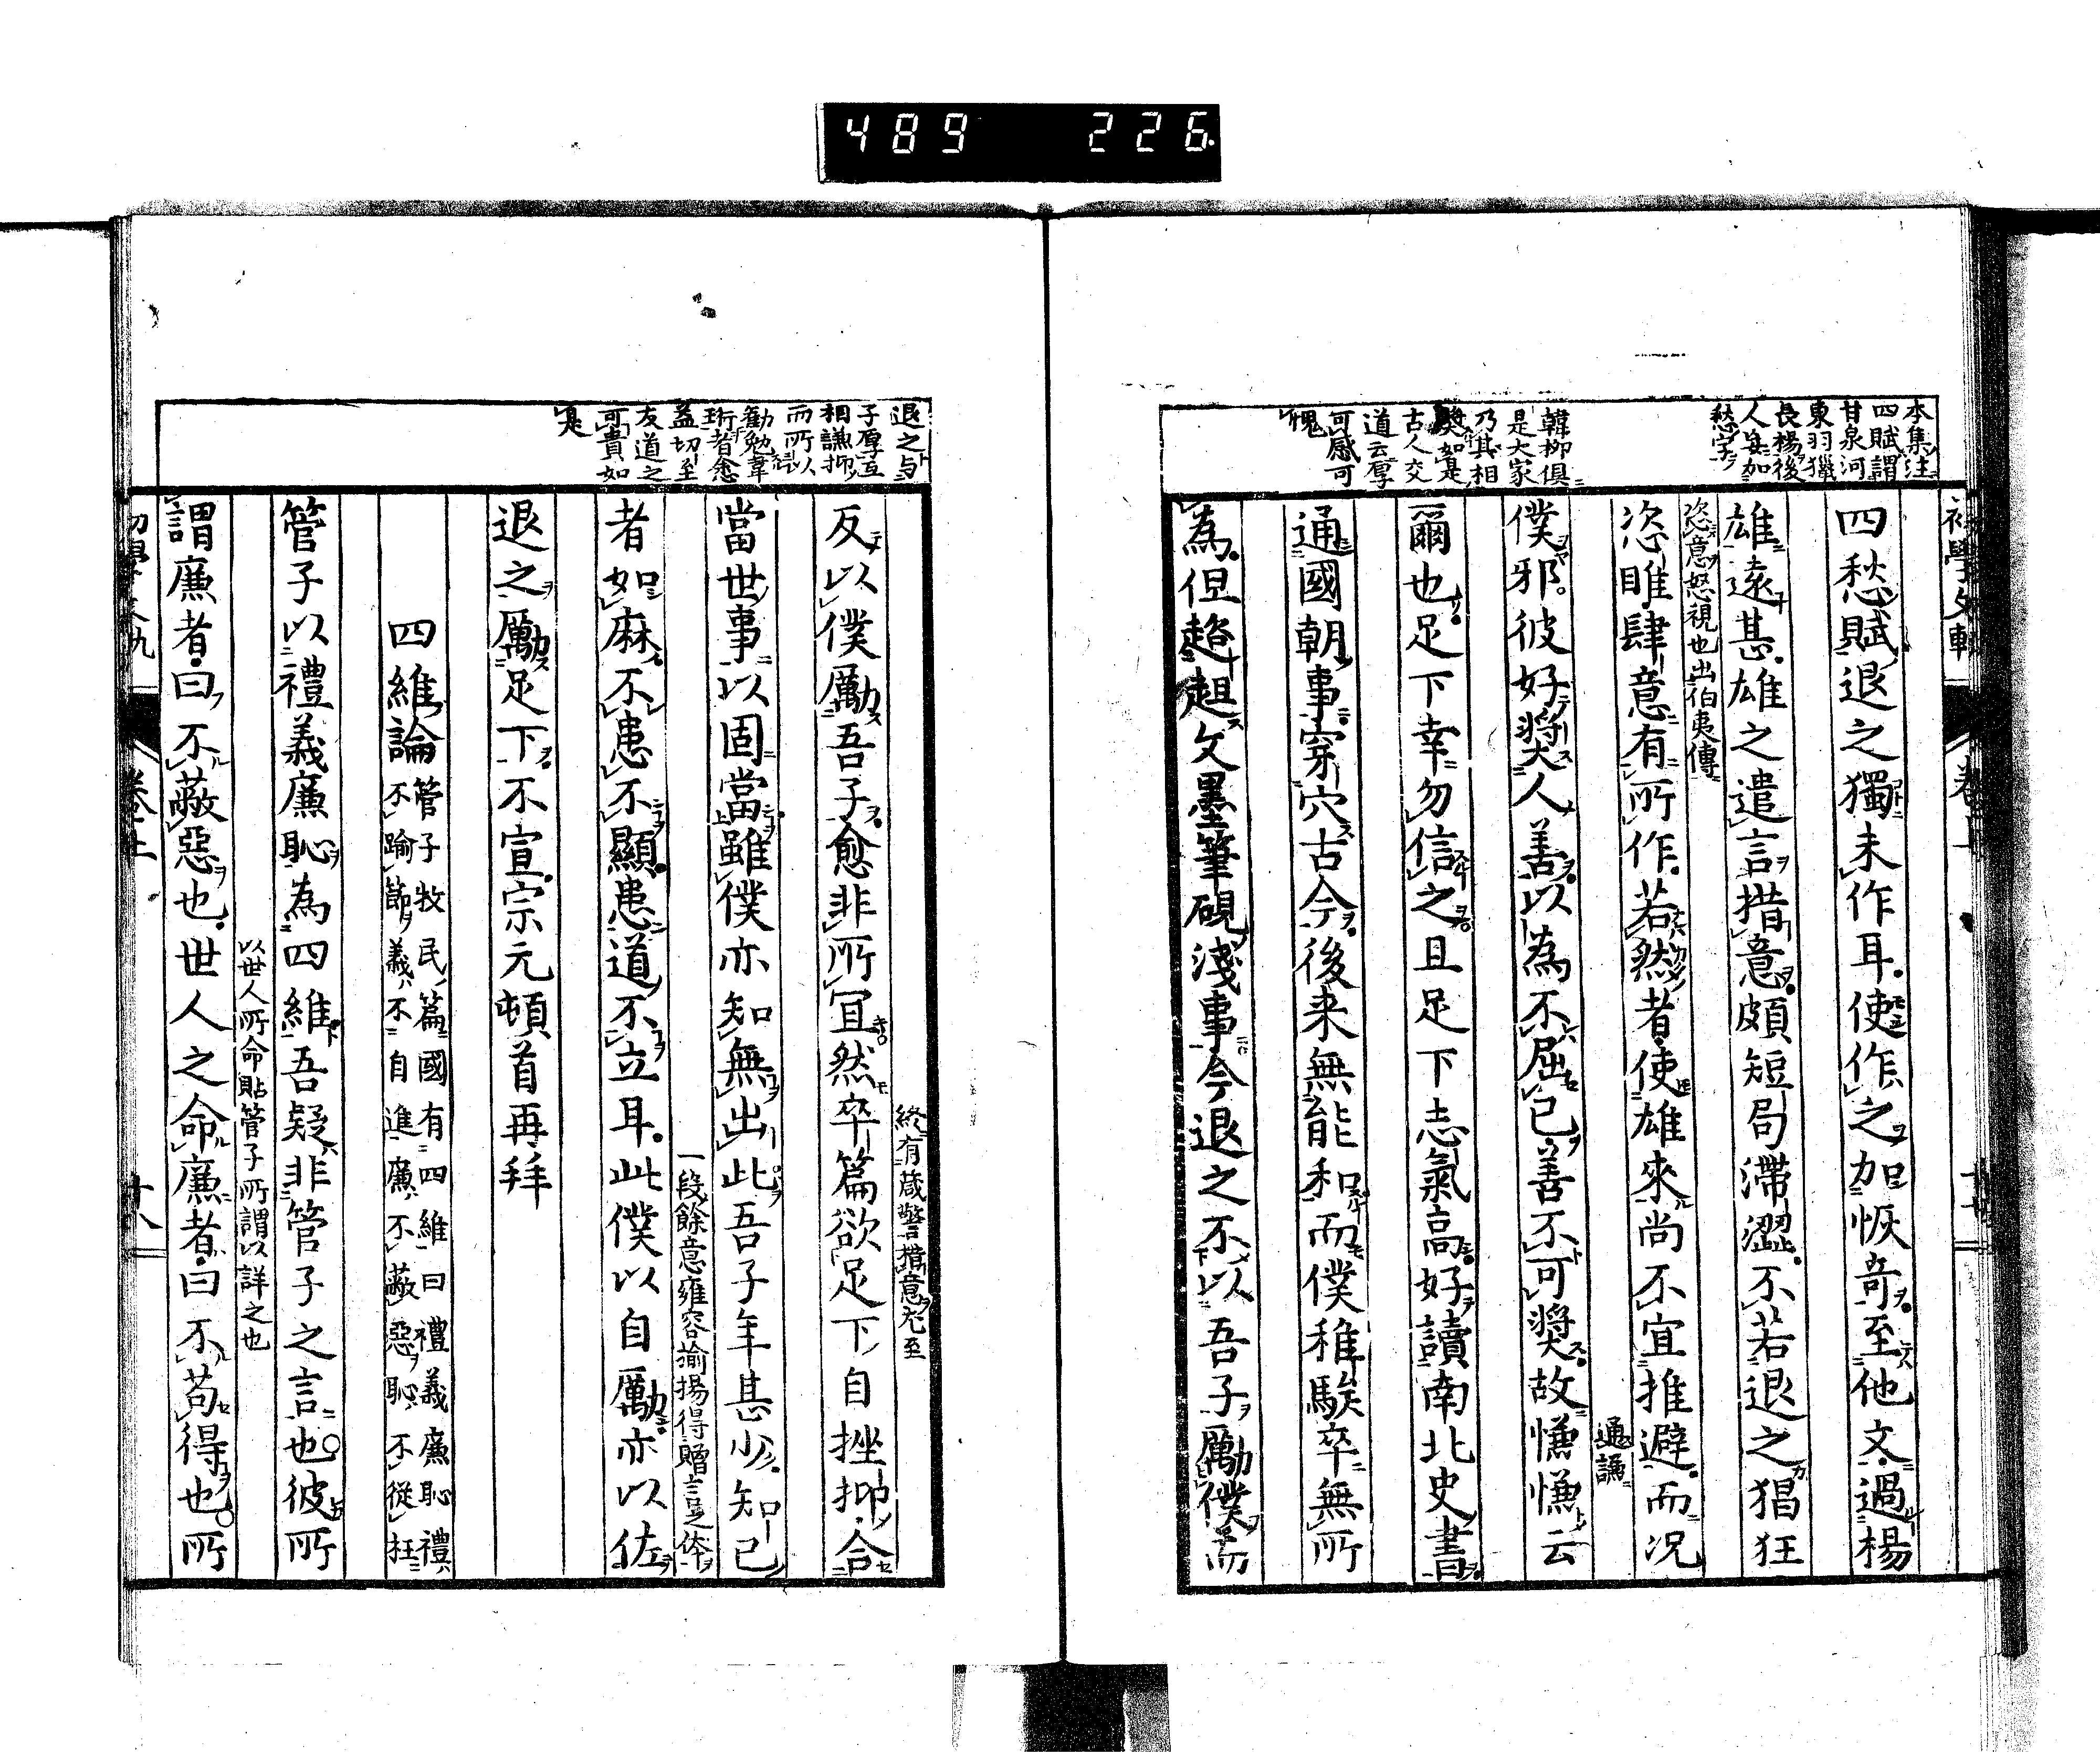 489 226
本集注
四賦謂
甘泉河
東羽獵
長楊後
人妄加
愁字
韓柳俱
是大家
乃其相
奬如是
古人交
道云厚
可感可
愧
四愁賦退之獨未作耳使作之加恢奇至他文過楊
雄遠甚雄之遣言措意頗短局滯澀不若退之猖狂
恣意怒視也出伯夷傳
恣睢肆意有所作若然者使雄來尚不宜推避而況
通謙
僕邪彼好奬人善以為不屈已善不可奬故慊慊云
爾也足下幸勿信之且足下志氣高好讀南北史書
通國朝事穿穴古今後来無能和而僕稚騃卒無所
為但趑趄文墨筆硯淺事今退之不以吾子勵僕而
退之与
子厚互
相謙抑
而所以
勸勉韋
珩者愈
益切至
友道之
可貴如
是
終有蔵警措意尤至
反以僕勵吾子愈非所冝然卒篇欲足下自挫抑合
當世事以固當雖僕亦知無出此吾子年甚少知已
一段餘意雍容揄揚得贈言之体
者如麻不患不顯患道不立耳此僕以自勵亦以佐
退之勵足下不宣宗元頓首再拜
四維論
管子牧民篇國有四維曰禮義廉恥禮
不踰節義不自進廉不蔽惡恥不從枉
管子以禮義廉恥為四維吾疑非管子之言也彼所
以世人所命貼管子所謂以詳之也
謂廉者曰不蔽惡也世人之命廉者曰不苟得也所
十八